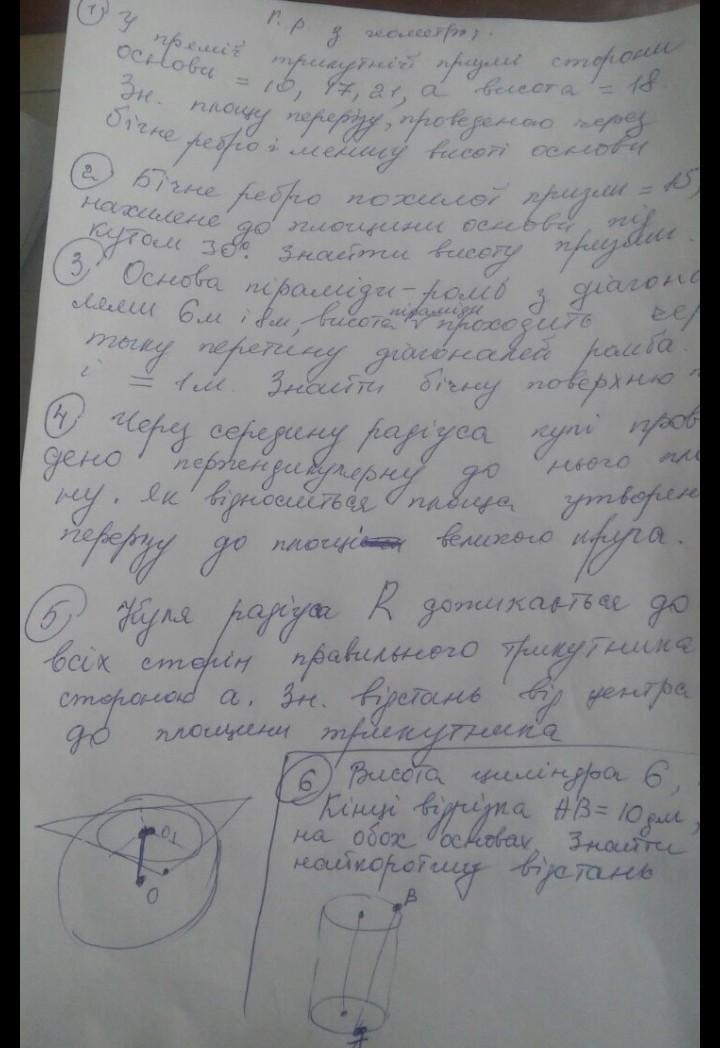 Г. Р з геометрії.
① У прямій трикутній призмі сторони
основи = 10, 17, 21, а висота = 18.
Зн. площу перерізу, проведеного через
бічне ребро і меншу висоті основи
② Бічне ребро похилої призми = 15,
нахилене до площини основи під
кутом 30°. Знайти висоту призми.
③ Основа піраміди - ромб з діагона
лями 6м і 8м, висота піраміди проходить чер
точку перетину діагоналей ромба.
і = 1м. Знайти бічну поверхню п
④ Через середину радіуса кулі прове
дено перпендикулярну до нього пло
ну. Як відноситься площа утворен
перерізу до площі великого круга.
⑤ Куля радіуса R дотикається до
всіх сторін правильного трикутника
стороною a. Зн. відстань від центра
до площини трикутника
O1
O
⑥ Висота циліндра 6,
Кінці відрізка AB = 10 дм,
на обох основах Знайти
найкоротшу відстань
B
A